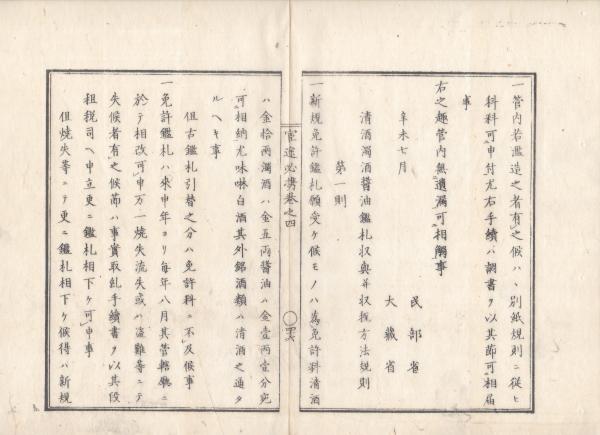 一管内若濫造之者有之候ハヽ別紙規則ニ従ヒ
科料可申付尤右手續ハ調書ヲ以其節可相届
事
右之趣管内無遺漏可相觸事
辛未七月
民部省
大藏省
清酒濁酒醤油鑑札収與并収税方法規則
第一則
一新規免許鑑札願受ケ候モノハ為免許料清酒
宦途必携巻之四
ハ金拾両濁酒ハ金五両醤油ハ金壹両壹分宛
可相納尤味醂白酒其外銘酒類ハ清酒之通タ
ルヘキ事
但古鑑札引替之分ハ免許料ニ不及候事
一免許鑑札ハ来申年ヨリ毎年八月其管轄廳ニ
於テ相改可申万一燒失流失或ハ盗難等ニテ
失候者有之候節ハ事實取糺手續書ヲ以其段
租税司ヘ申立更ニ鑑札相下ケ可申事
但燒失等ニテ更ニ鑑札相下ケ候得ハ新規